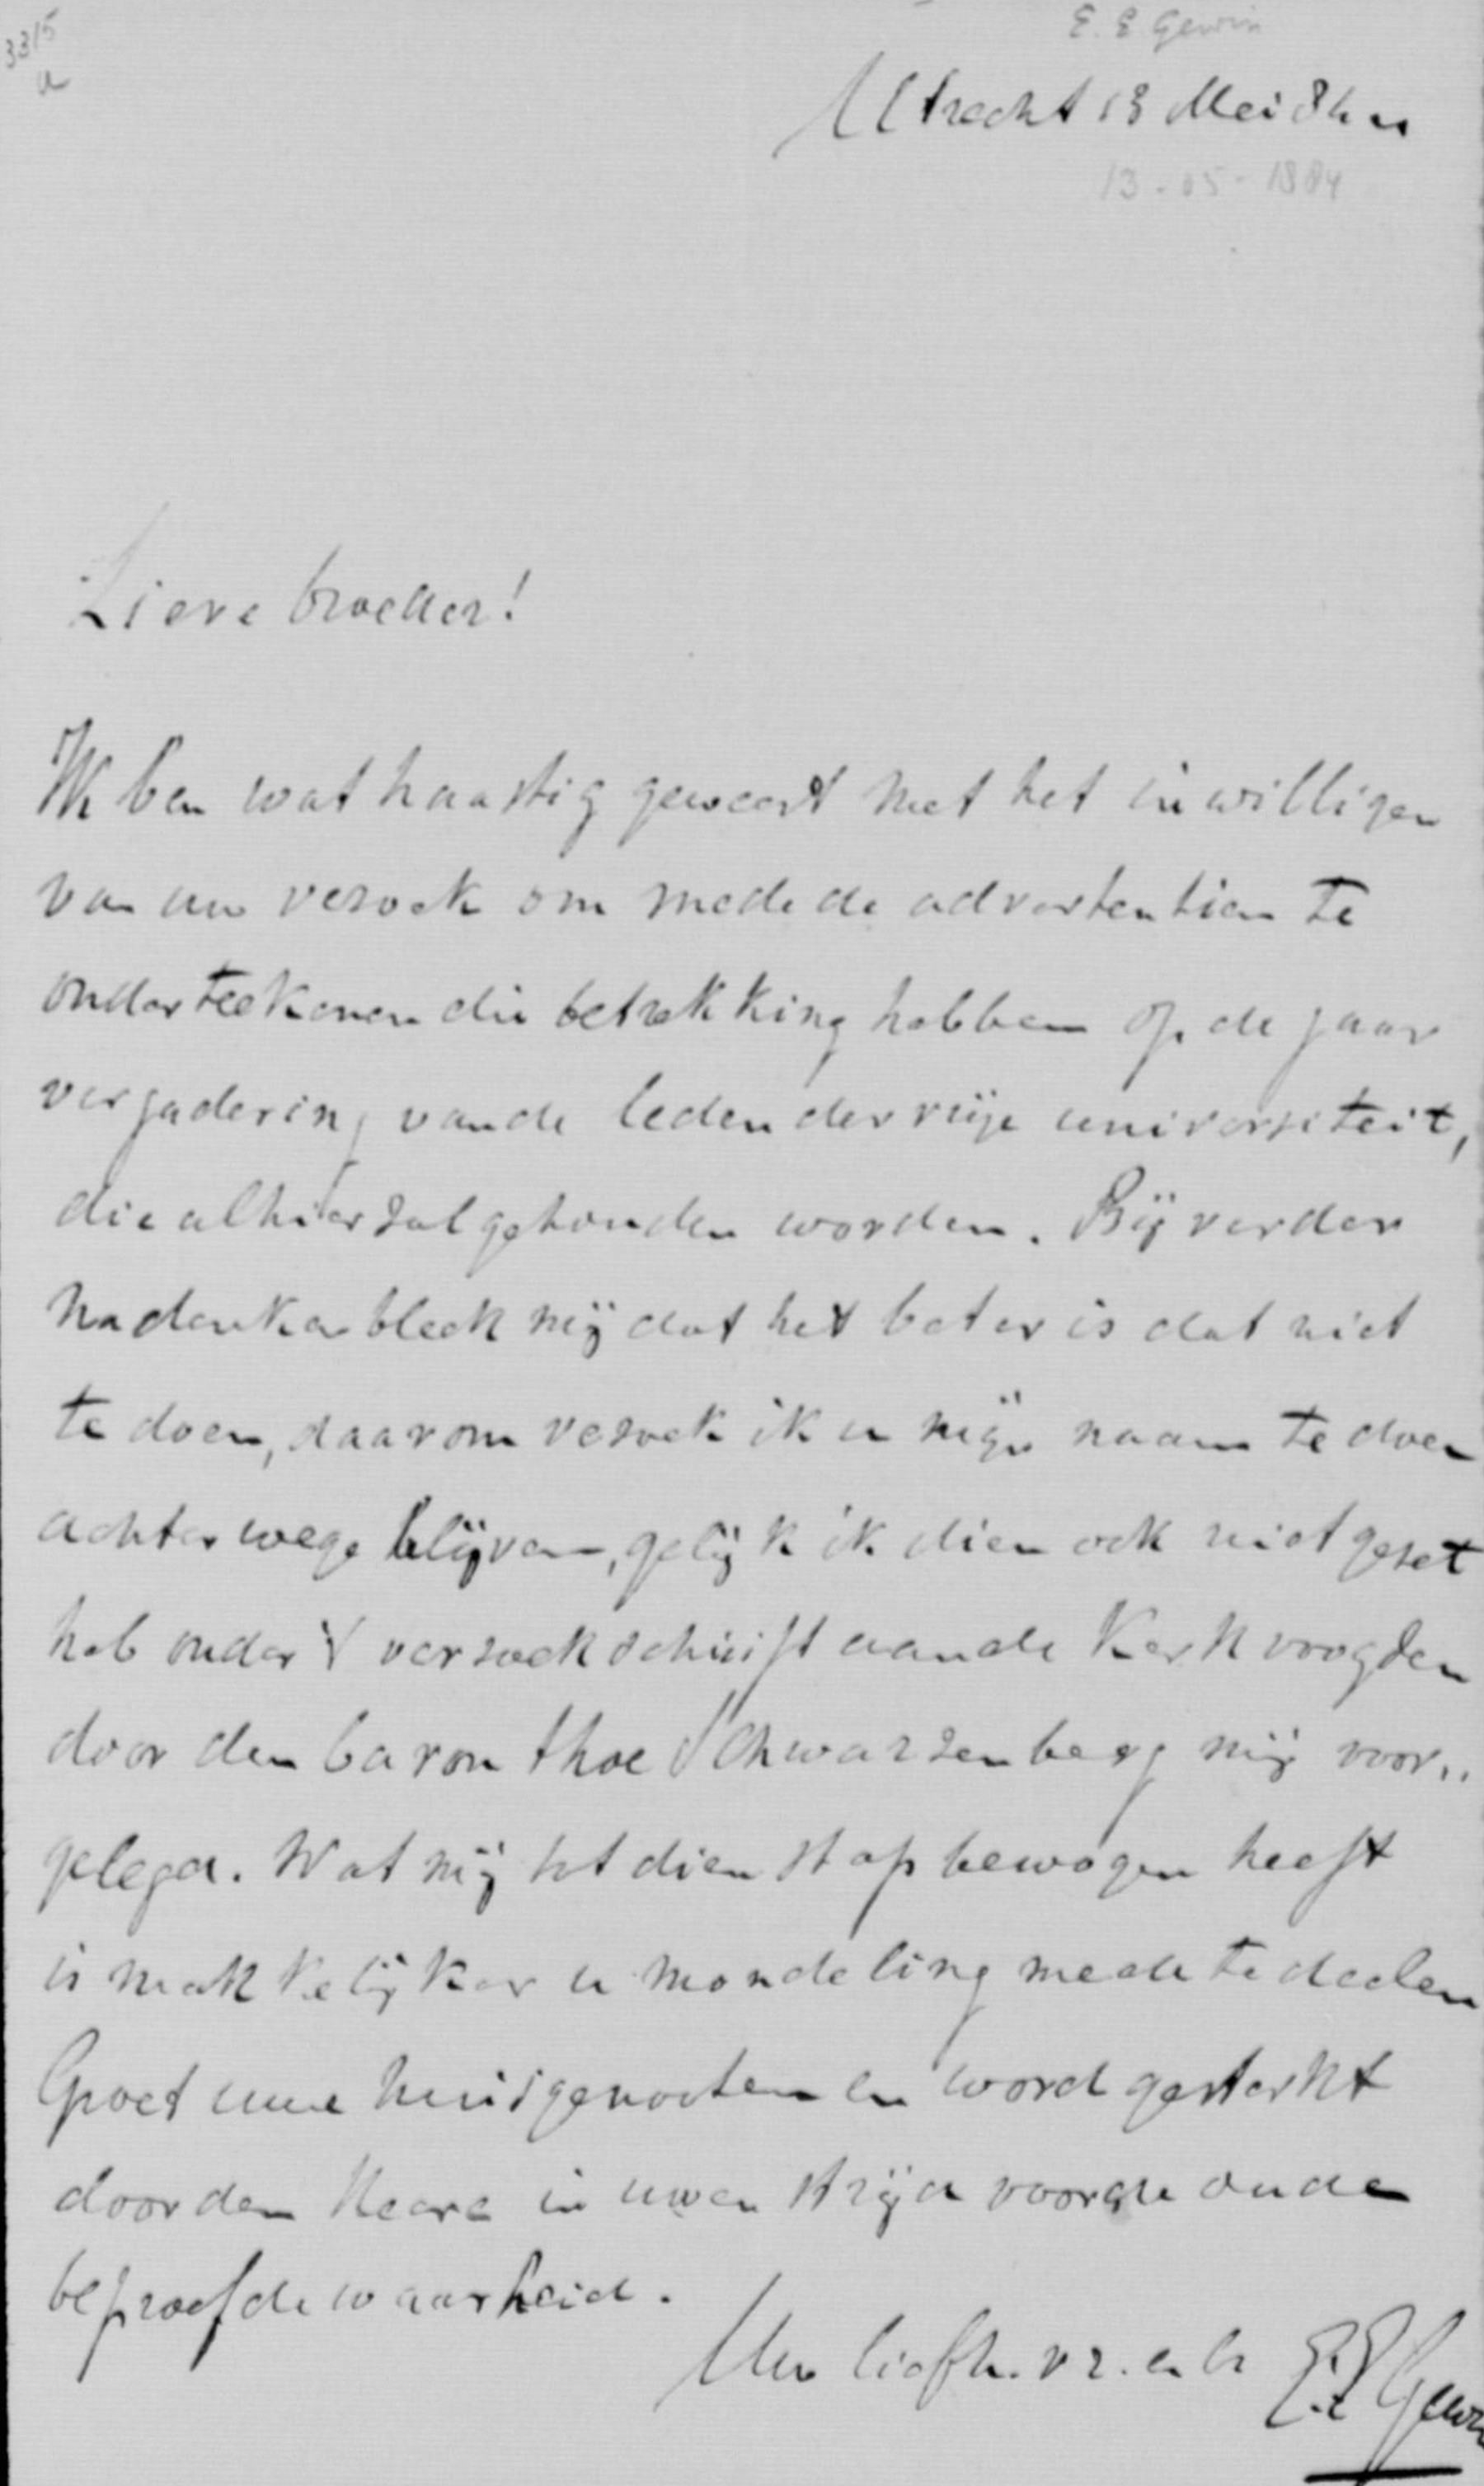 3315
a
E. E Gewin
Utrecht 13 Mei 84
13-05-1884
Lieve broeder!
Ik ben wat haastig geweest met het inwilligen
van uw verzoek om mede de advertentien te
onderteekenen die betrekking hebben op de jaar
vergadering van de leden der vrije universiteit,
die alhier zal gehouden worden. Bij verder
nadenken bleek mij dat het beter is dat niet
te doen, daarom verzoek ik u mijn naam te doen
achterwege blijven, gelijk ik dien ook niet gezet
heb onder 't verzoekschrift aan de Kerkvoogden
door den baron thoe Schwarzenberg mij voor..
gelegd. Wat mij tot dien stap bewogen heeft
is makkelijker u mondeling mede te deelen
Groet uwe huisgenooten en word gesterkt
door den Heere in uwen strijd voor de oude
beproefde waarheid.
Uw liefh. vr. en br E.E Gewin